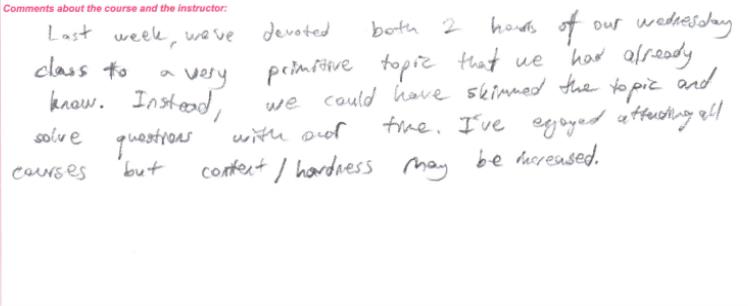 Comments about the course and the instructor:
Last week, we've devoted both 2 hours of our wednesday
class to a very primitive topic that we had already
know. Instead, we could have skimmed the topic and
solve questions with our time. I've enjoyed attending all
courses but content / hardness may be increased.